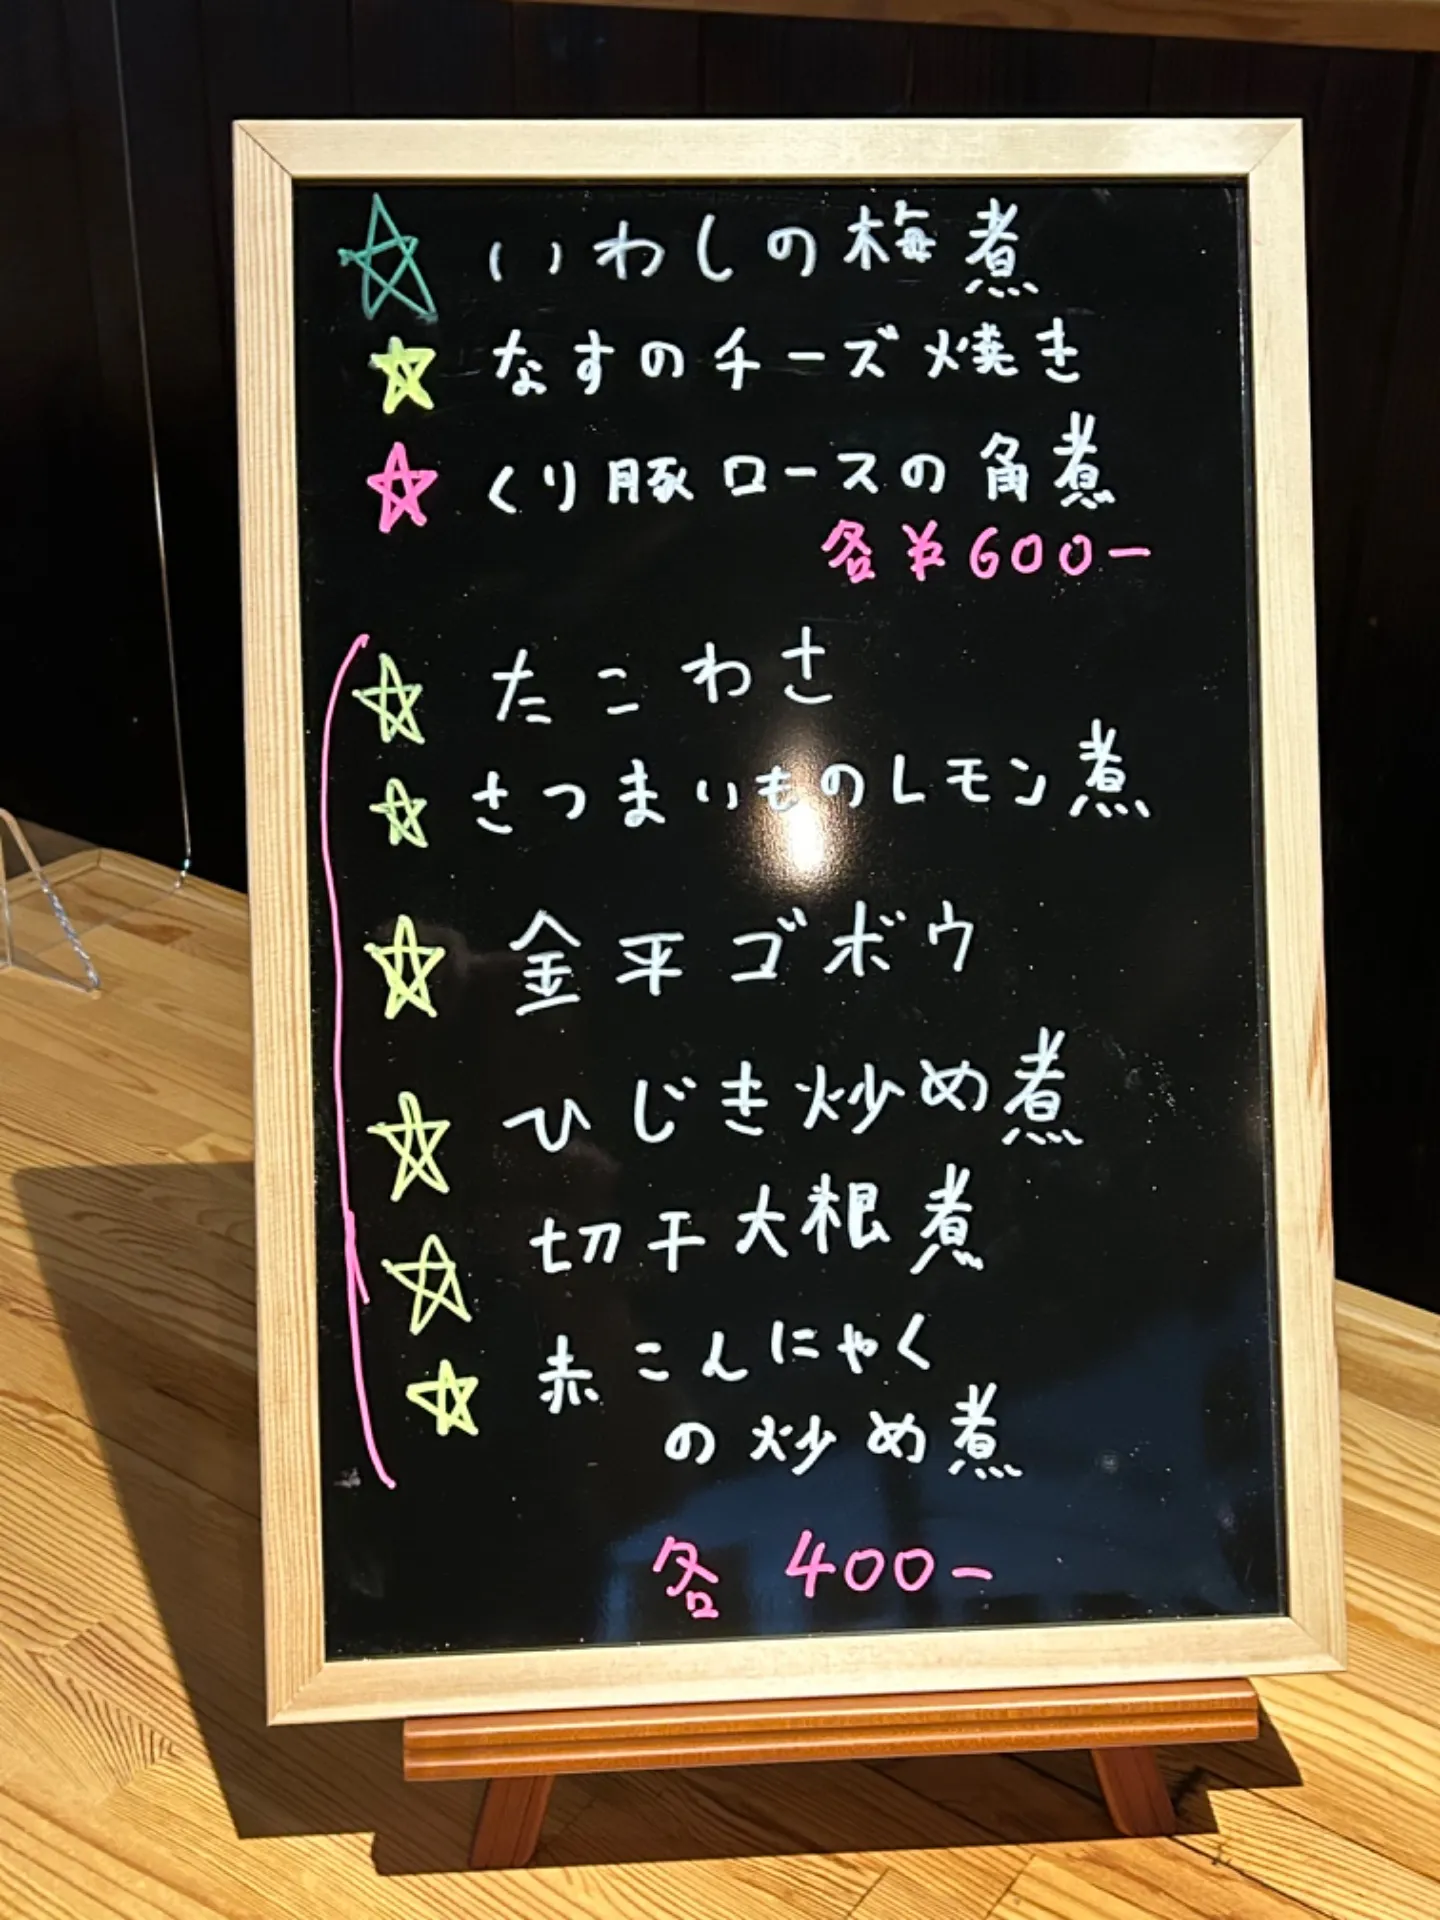 ☆ いわしの梅煮
☆ なすのチーズ焼き
☆ くり豚ロースの角煮
各¥600-
☆ たこわさ
☆ さつまいものレモン煮
☆ 金平ゴボウ
☆ ひじき炒め煮
☆ 切干大根煮
☆ 赤こんにゃく
の炒め煮
各 400-